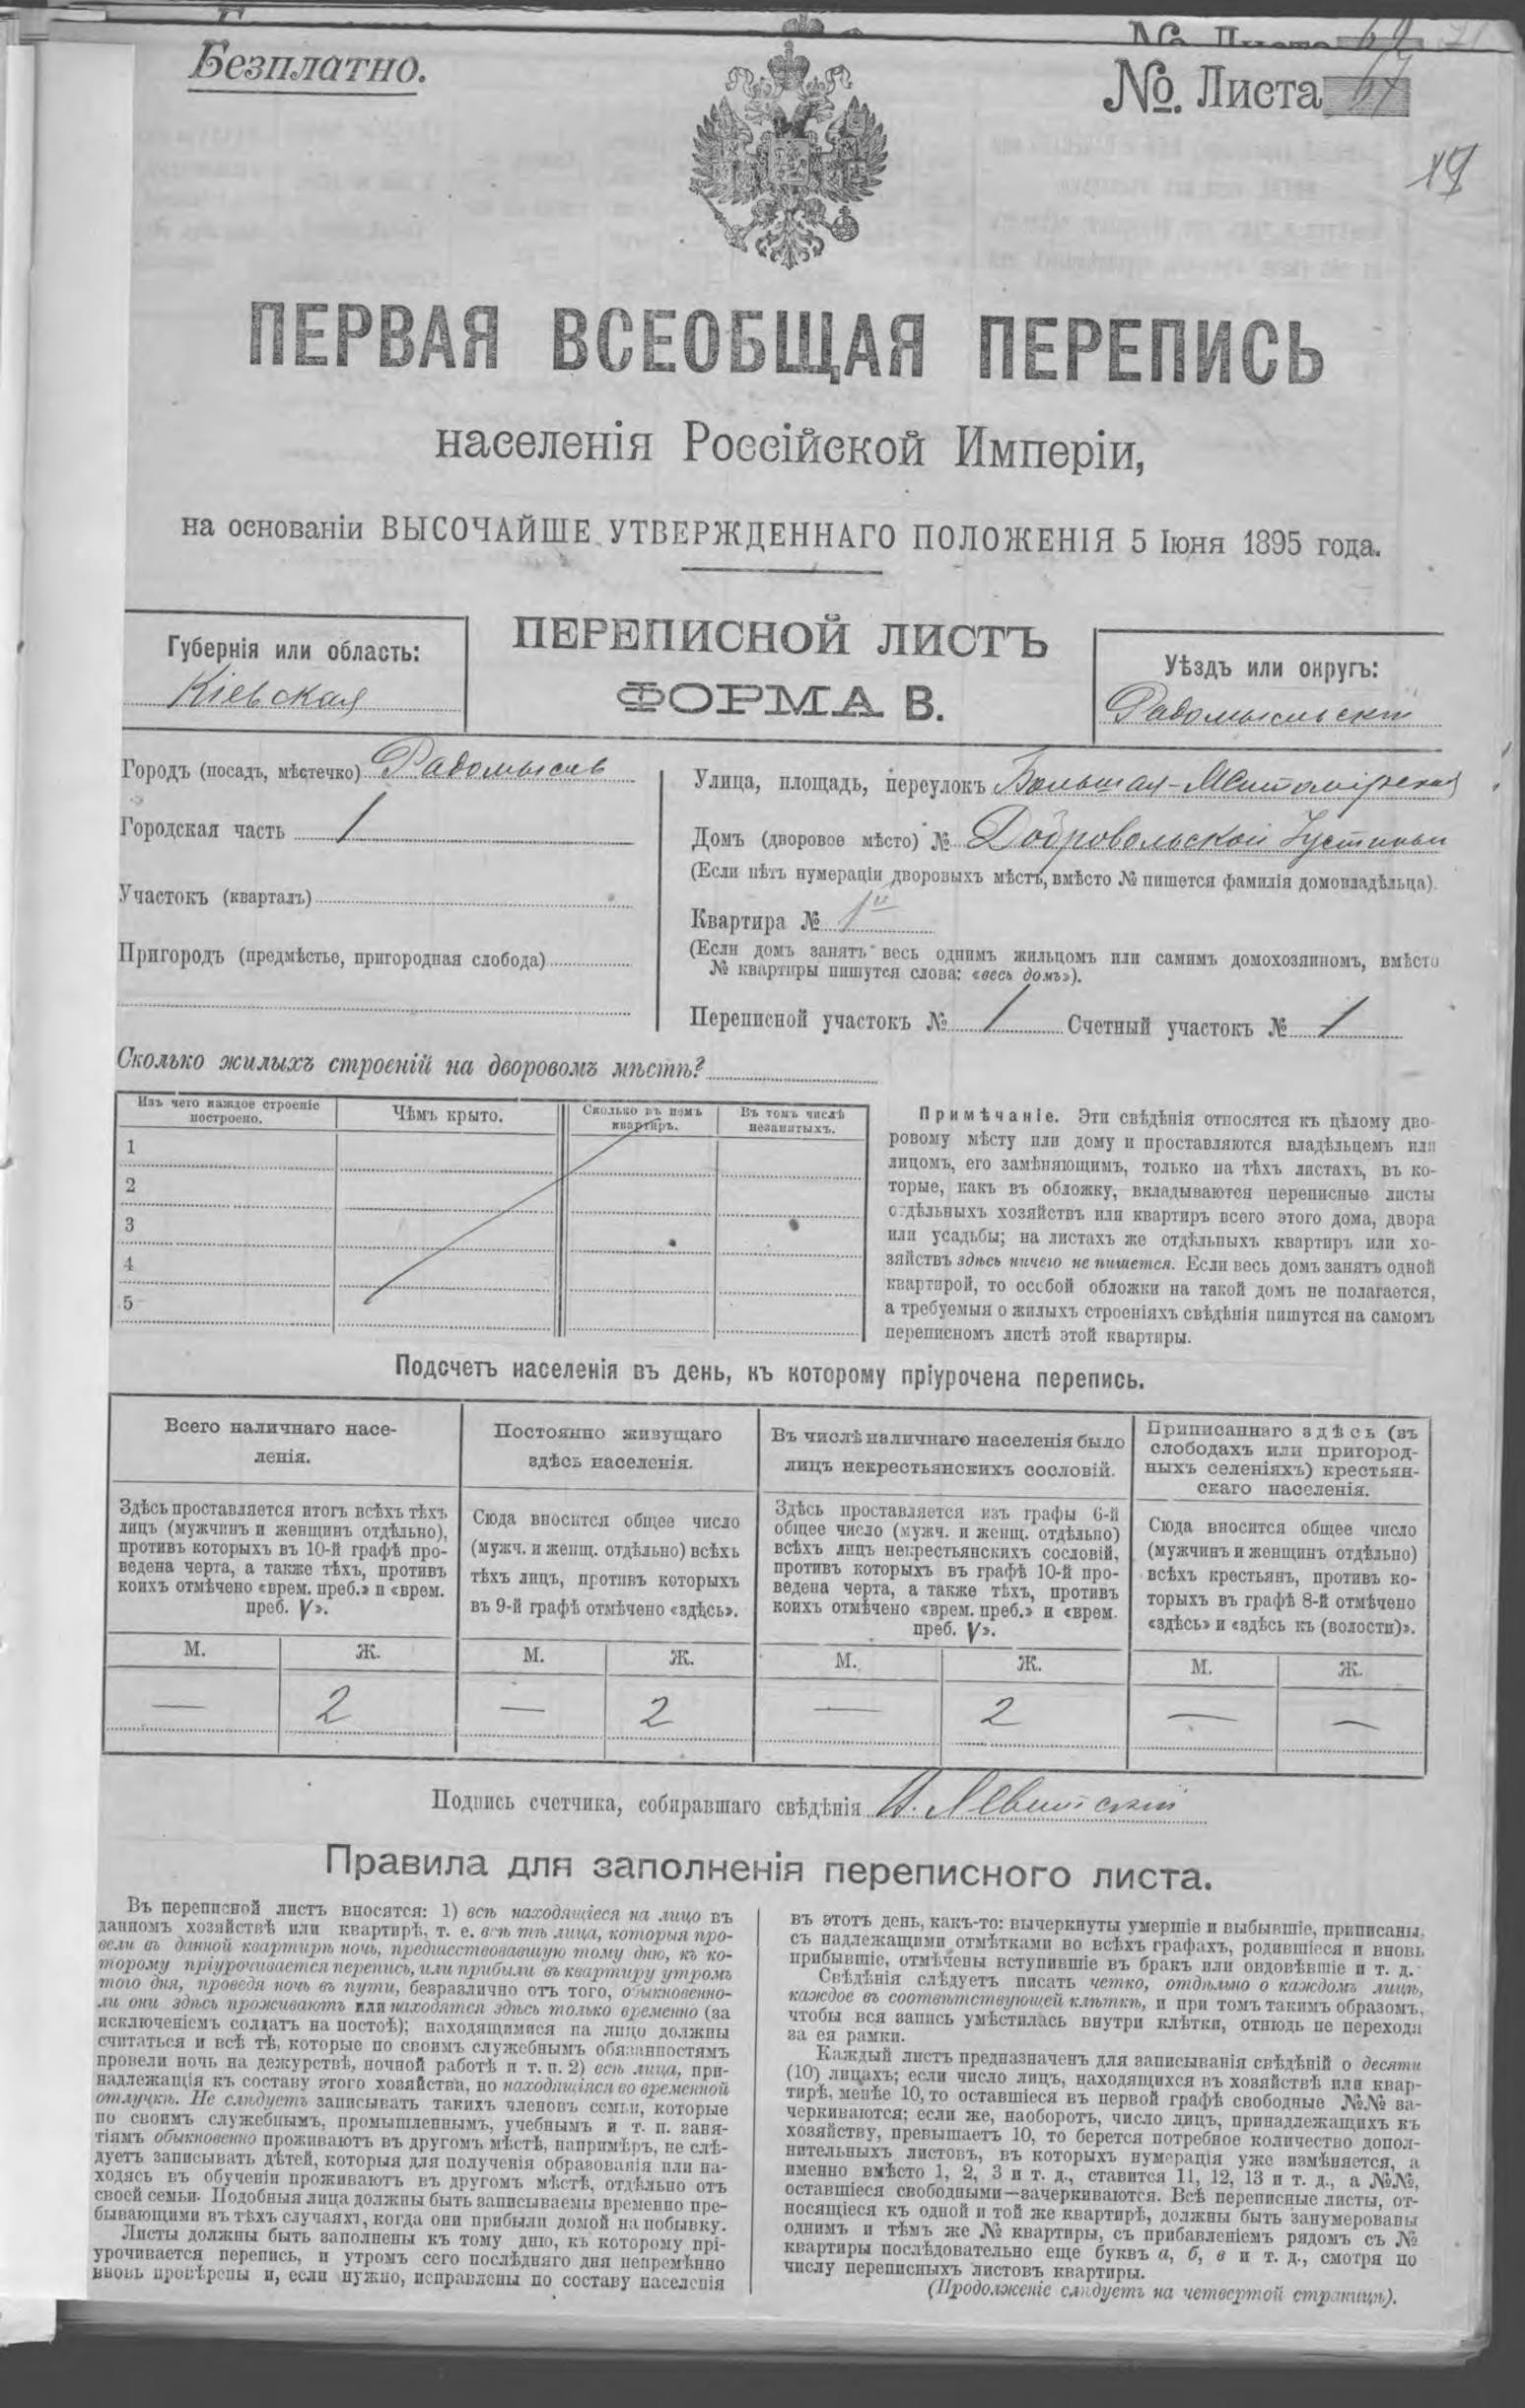 Безплатно.
№. Листа 67
19
ПЕРВАЯ ВСЕОБЩАЯ ПЕРЕПИСЬ
населенія Россійской Имперіи,
на основаніи ВЫСОЧАЙШЕ УТВЕРЖДЕННАГО ПОЛОЖЕНІЯ 5 Іюня 1895 года.
Губернія или область:
Кіевская
ПЕРЕПИСНОЙ ЛИСТЪ
ФОРМА В.
Уѣздъ или округъ:
Радомысльскій
Городъ (посадъ, мѣстечко) Радомысль
Городская часть 1
Участокъ (кварталъ)
Пригородъ (предмѣстье, пригородная слобода)
Улица, площадь, переулокъ Большая-Житомірская
Домъ (дворовое мѣсто) № Добровольской Іустиньи
(Если нѣтъ нумераціи дворовыхъ мѣстъ, вмѣсто № пишется фамилія домовладѣльца).
Квартира № 1й
(Если домъ занятъ весь однимъ жильцомъ или самимъ домохозяиномъ, вмѣсто
№ квартиры пишутся слова: «весь домъ»).
Переписной участокъ № 1 Счетный участокъ № 1
Сколько жилыхъ строеній на дворовомъ мѣстѣ?
Изъ чего каждое строеніе
построено.
Чѣмъ крыто.
Сколько въ немъ
квартиръ.
Въ томъ числѣ
незанятыхъ.
1
2
3
4
5
Примѣчаніе. Эти свѣдѣнія относятся къ цѣлому дво-
ровому мѣсту или дому и проставляются владѣльцемъ или
лицомъ, его замѣняющимъ, только на тѣхъ листахъ, въ ко-
торые, какъ въ обложку, вкладываются переписные листы
отдѣльныхъ хозяйствъ или квартиръ всего этого дома, двора
или усадьбы; на листахъ же отдѣльныхъ квартиръ или хо-
зяйствъ здѣсь ничего не пишется. Если весь домъ занятъ одной
квартирой, то особой обложки на такой домъ не полагается,
а требуемыя о жилыхъ строеніяхъ свѣдѣнія пишутся на самомъ
переписномъ листѣ этой квартиры.
Подсчетъ населенія въ день, къ которому пріурочена перепись.
Всего наличнаго насе-
ленія.
Постоянно живущаго
здѣсь населенія.
Въ числѣ наличнаго населенія было
лицъ некрестьянскихъ сословій.
Приписаннаго здѣсь (въ
слободахъ или пригород-
ныхъ селеніяхъ) крестьян-
скаго населенія.
Здѣсь проставляется итогъ всѣхъ тѣхъ
лицъ (мужчинъ и женщинъ отдѣльно),
противъ которыхъ въ 10-й графѣ про-
ведена черта, а также тѣхъ, противъ
коихъ отмѣчено «врем. преб.» и «врем.
преб. V».
Сюда вносится общее число
(мужч. и женщ. отдѣльно) всѣхъ
тѣхъ лицъ, противъ которыхъ
въ 9-й графѣ отмѣчено «здѣсь».
Здѣсь проставляется изъ графы 6-й
общее число (мужч. и женщ. отдѣльно)
всѣхъ лицъ некрестьянскихъ сословій,
противъ которыхъ въ графѣ 10-й про-
ведена черта, а также тѣхъ, противъ
коихъ отмѣчено «врем. преб.» и «врем.
преб. V».
Сюда вносится общее число
(мужчинъ и женщинъ отдѣльно)
всѣхъ крестьянъ, противъ ко-
торыхъ въ графѣ 8-й отмѣчено
«здѣсь» и «здѣсь къ (волости)».
М. Ж. М. Ж. М. Ж. М. Ж.
— 2 — 2 — 2 — —
Подпись счетчика, собиравшаго свѣдѣнія А. Левитскій
Правила для заполненія переписного листа.
Въ переписной листъ вносятся: 1) всѣ находящіеся на лицо въ
данномъ хозяйствѣ или квартирѣ, т. е. всѣ тѣ лица, которыя про-
вели въ данной квартирѣ ночь, предшествовавшую тому дню, къ ко-
торому пріурочивается перепись, или прибыли въ квартиру утромъ
того дня, проведя ночь въ пути, безразлично отъ того, обыкновенно-
ли они здѣсь проживаютъ или находятся здѣсь только временно (за
исключеніемъ солдатъ на постоѣ); находящимися на лицо должны
считаться и всѣ тѣ, которые по своимъ служебнымъ обязанностямъ
провели ночь на дежурствѣ, ночной работѣ и т. п. 2) всѣ лица, при-
надлежащія къ составу этого хозяйства, но находящіяся во временной
отлучкѣ. Не слѣдуетъ записывать такихъ членовъ семьи, которые
по своимъ служебнымъ, промышленнымъ, учебнымъ и т. п. заня-
тіямъ обыкновенно проживаютъ въ другомъ мѣстѣ, напримѣръ, не слѣ-
дуетъ записывать дѣтей, которыя для полученія образованія или на-
ходясь въ обученіи проживаютъ въ другомъ мѣстѣ, отдѣльно отъ
своей семьи. Подобныя лица должны быть записываемы временно пре-
бывающими въ тѣхъ случаяхъ, когда они прибыли домой на побывку.
Листы должны быть заполнены къ тому дню, къ которому прі-
урочивается перепись, и утромъ сего послѣдняго дня непремѣнно
вновь провѣрены и, если нужно, исправлены по составу населенія
въ этотъ день, какъ-то: вычеркнуты умершіе и выбывшіе, приписаны,
съ надлежащими отмѣтками во всѣхъ графахъ, родившіеся и вновь
прибывшіе, отмѣчены вступившіе въ бракъ или овдовѣвшіе и т. д.
Свѣдѣнія слѣдуетъ писать четко, отдѣльно о каждомъ лицѣ,
каждое въ соотвѣтствующей клѣткѣ, и при томъ такимъ образомъ,
чтобы вся запись умѣстилась внутри клѣтки, отнюдь не переходя
за ея рамки.
Каждый листъ предназначенъ для записыванія свѣдѣній о десяти
(10) лицахъ; если число лицъ, находящихся въ хозяйствѣ или квар-
тирѣ, менѣе 10, то оставшіеся въ первой графѣ свободные №№ за-
черкиваются; если же, наоборотъ, число лицъ, принадлежащихъ къ
хозяйству, превышаетъ 10, то берется потребное количество допол-
нительныхъ листовъ, въ которыхъ нумерація уже измѣняется, а
именно вмѣсто 1, 2, 3 и т. д., ставится 11, 12, 13 и т. д., а №№,
оставшіеся свободными—зачеркиваются. Всѣ переписные листы, от-
носящіеся къ одной и той же квартирѣ, должны быть занумерованы
однимъ и тѣмъ же № квартиры, съ прибавленіемъ рядомъ съ №
квартиры послѣдовательно еще буквъ а, б, в и т. д., смотря по
числу переписныхъ листовъ квартиры.
(Продолженіе слѣдуетъ на четвертой страницѣ).